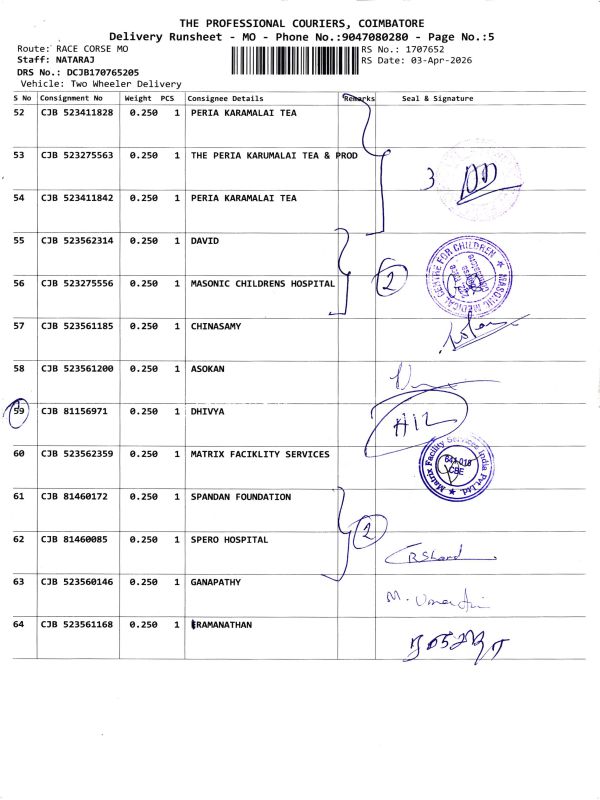 THE PROFESSIONAL COURIERS, COIMBATORE
Delivery Runsheet - MO - Phone No.:9047080280 - Page No.:5
Route: RACE CORSE MO RS No.: 1707652
Staff: NATARAJ RS Date: 03-Apr-2026
DRS No.: DCJB170765205
Vehicle: Two Wheeler Delivery
S No Consignment No Weight PCS Consignee Details Remarks Seal & Signature
52 CJB 523411828 0.250 1 PERIA KARAMALAI TEA
53 CJB 523275563 0.250 1 THE PERIA KARUMALAI TEA & PROD 3
54 CJB 523411842 0.250 1 PERIA KARAMALAI TEA
55 CJB 523562314 0.250 1 DAVID
56 CJB 523275556 0.250 1 MASONIC CHILDRENS HOSPITAL 2
MASONIC MEDICAL CENTRE FOR CHILDREN
57 CJB 523561185 0.250 1 CHINASAMY
58 CJB 523561200 0.250 1 ASOKAN
59 CJB 81156971 0.250 1 DHIVYA
60 CJB 523562359 0.250 1 MATRIX FACIKLITY SERVICES
Matrix Facility Services India Pvt Ltd.
641 018
CBE
61 CJB 81460172 0.250 1 SPANDAN FOUNDATION
62 CJB 81460085 0.250 1 SPERO HOSPITAL 2
63 CJB 523560146 0.250 1 GANAPATHY
64 CJB 523561168 0.250 1 RAMANATHAN